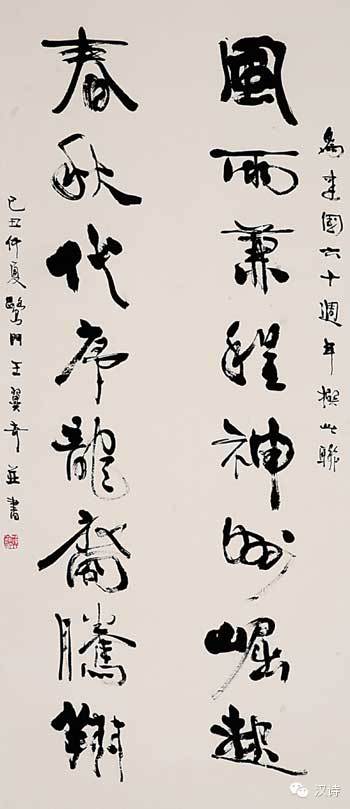 為建國六十週年撰此聯
風雨兼程神州崛起
春秋代序龍裔騰翔
己丑仲夏鷺門王翼奇並書
汉诗